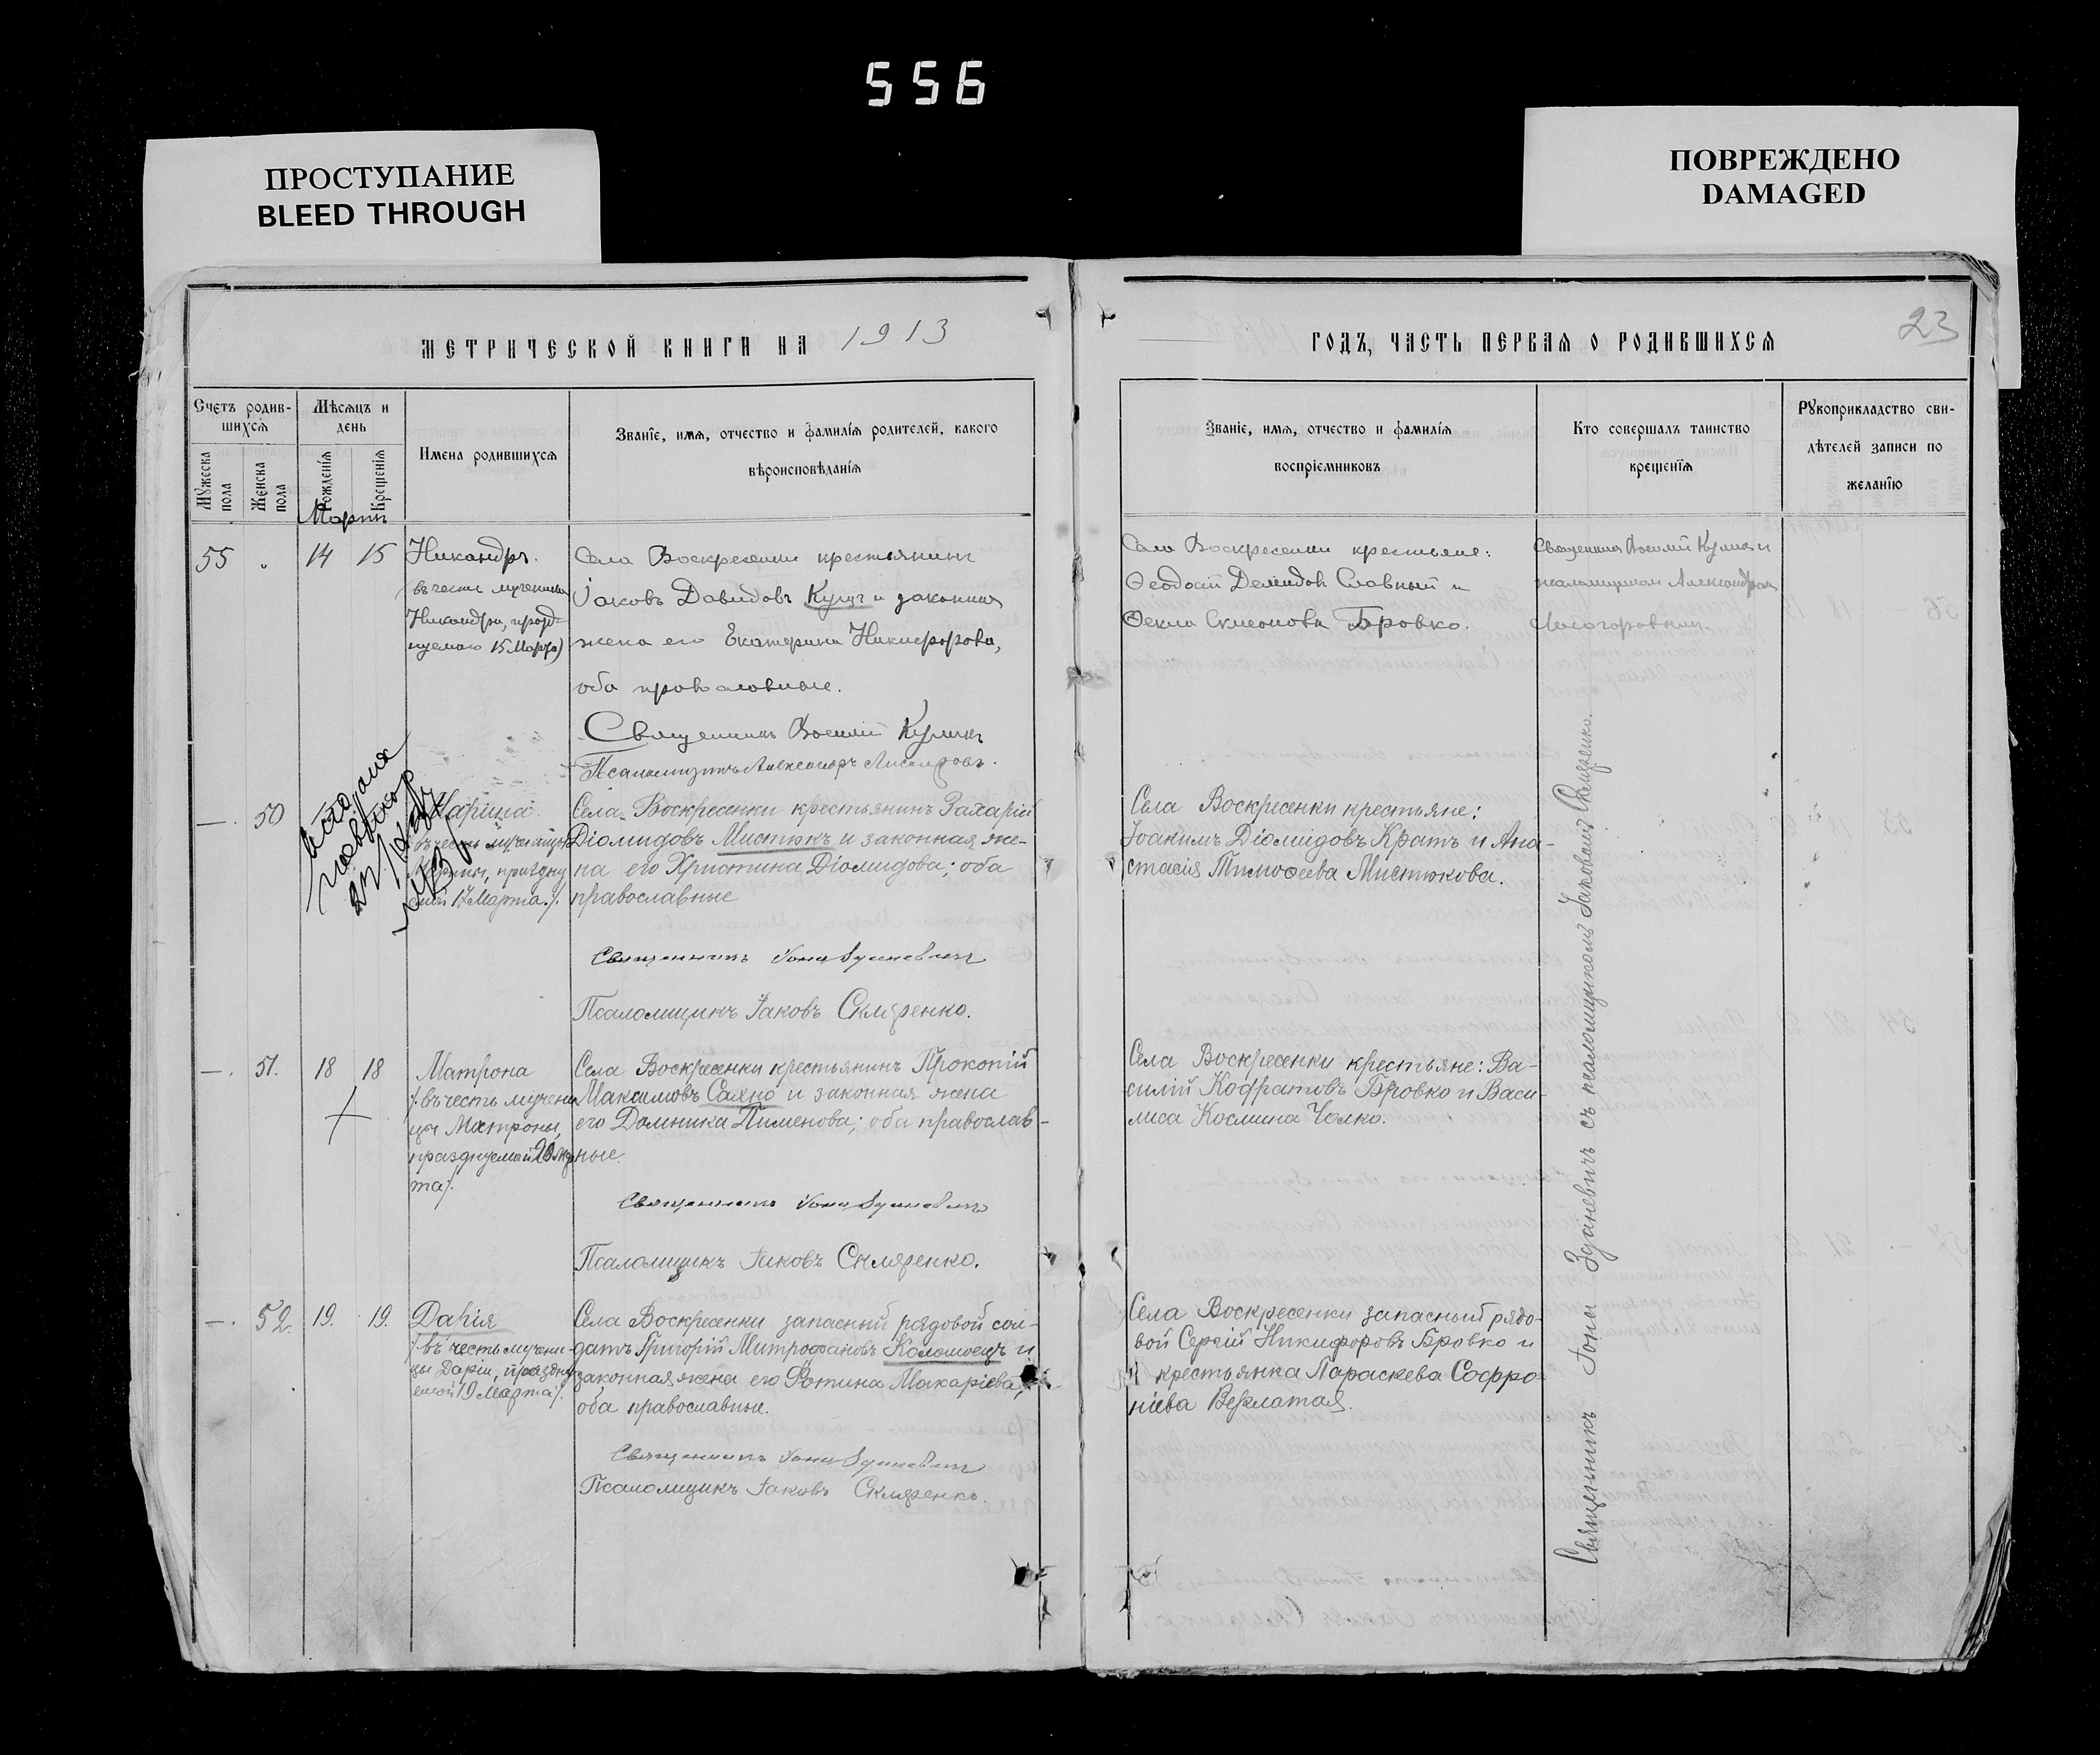 556
ПРОСТУПАНИЕ
BLEED THROUGH
ПОВРЕЖДЕНО
DAMAGED
МЕТРИЧЕСКОЙ КНИГИ НА 1913
ГОДЪ, ЧАСТЬ ПЕРВАЯ О РОДИВШИХСЯ
23
Счетъ родив-
шихся
Мужеска
пола
Женска
пола
Мѣсяцъ и
день
Рожденія
Крещенія
Имена родившихся
Званіе, имя, отчество и фамилія родителей, какого
вѣроисповѣданія
Званіе, имя, отчество и фамилія
воспріемниковъ
Кто совершалъ таинство
крещенія
Рукоприкладство сви-
дѣтелей записи по
желанію
55 14 15
Никандръ.
въ честь мученика
15 Марта)
Села Воскресенки крестьянинъ
Іаковъ Давидовъ Кущъ и законная
жена его Екатерина Никифорова,
оба православные.
Священникъ Василій
Псаломщикъ Александръ
Села Воскресенки крестьяне:
Ѳеодосій Демидовъ Славный и
Ѳекла Бровко.
Священникъ Василій
псаломщикомъ Александромъ
— 50
Марина
17 Марта./.
Села Воскресенки крестьянинъ Захарій
Діомидовъ Мистюкъ и законная же-
на его Христина Діомидова; оба
православные
Священникъ Іона Зданевичъ
Псаломщикъ Іаковъ Скляренко.
Села Воскресенки крестьяне:
Іоакимъ Діомидовъ Кратъ и Ана-
стасія Тимоѳеева Мистюкова.
—. 51. 18 18
Матрона
/.въ честь мучени
цы Матроны,
празднуемой 20 Мар
та/.
Села Воскресенки крестьянинъ Прокопій
Максимовъ Сахно и законная жена
его Домника Пименова; оба православ-
ные.
Священникъ Іона Зданевичъ
Псаломщикъ Іаковъ Скляренко.
Села Воскресенки крестьяне: Ва-
силій Кодратовъ Бровко и Васи-
лиса Космина Чолко.
—. 52. 19. 19.
Дарія
/.въ честь мучени-
цы Даріи, праздну
емой 19 Марта/.
Села Воскресенки запасный рядовой сол-
датъ Григорій Митрофановъ Коломоецъ и
законная жена его Фотина Макаріева,
оба православные.
Священникъ Іона Зданевичъ
Псаломщикъ Іаковъ Скляренко.
Села Воскресенки запасный рядо-
вой Сергій Никифоровъ Бровко и
крестьянка Параскева Софро-
ніева Верлатая.
Священникъ Іона Зданевичъ съ псаломщикомъ Іаковомъ Скляренко.